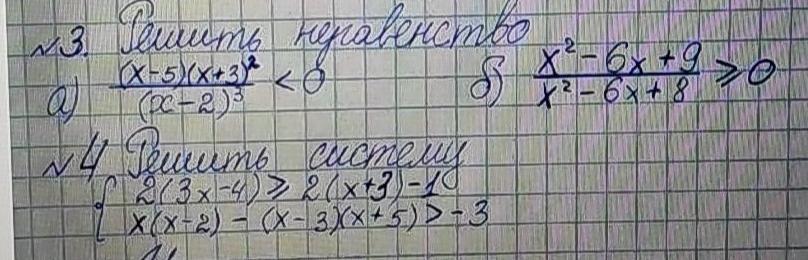 №3. Решить неравенство
а) (x-5)(x+3)²/(x-2)³ < 0 б) x²-6x+9/x²-6x+8 ⩾ 0
№4 Решить систему
{ 2(3x-4) ⩾ 2(x+3)-10
x(x-2) - (x-3)(x+5) > -3